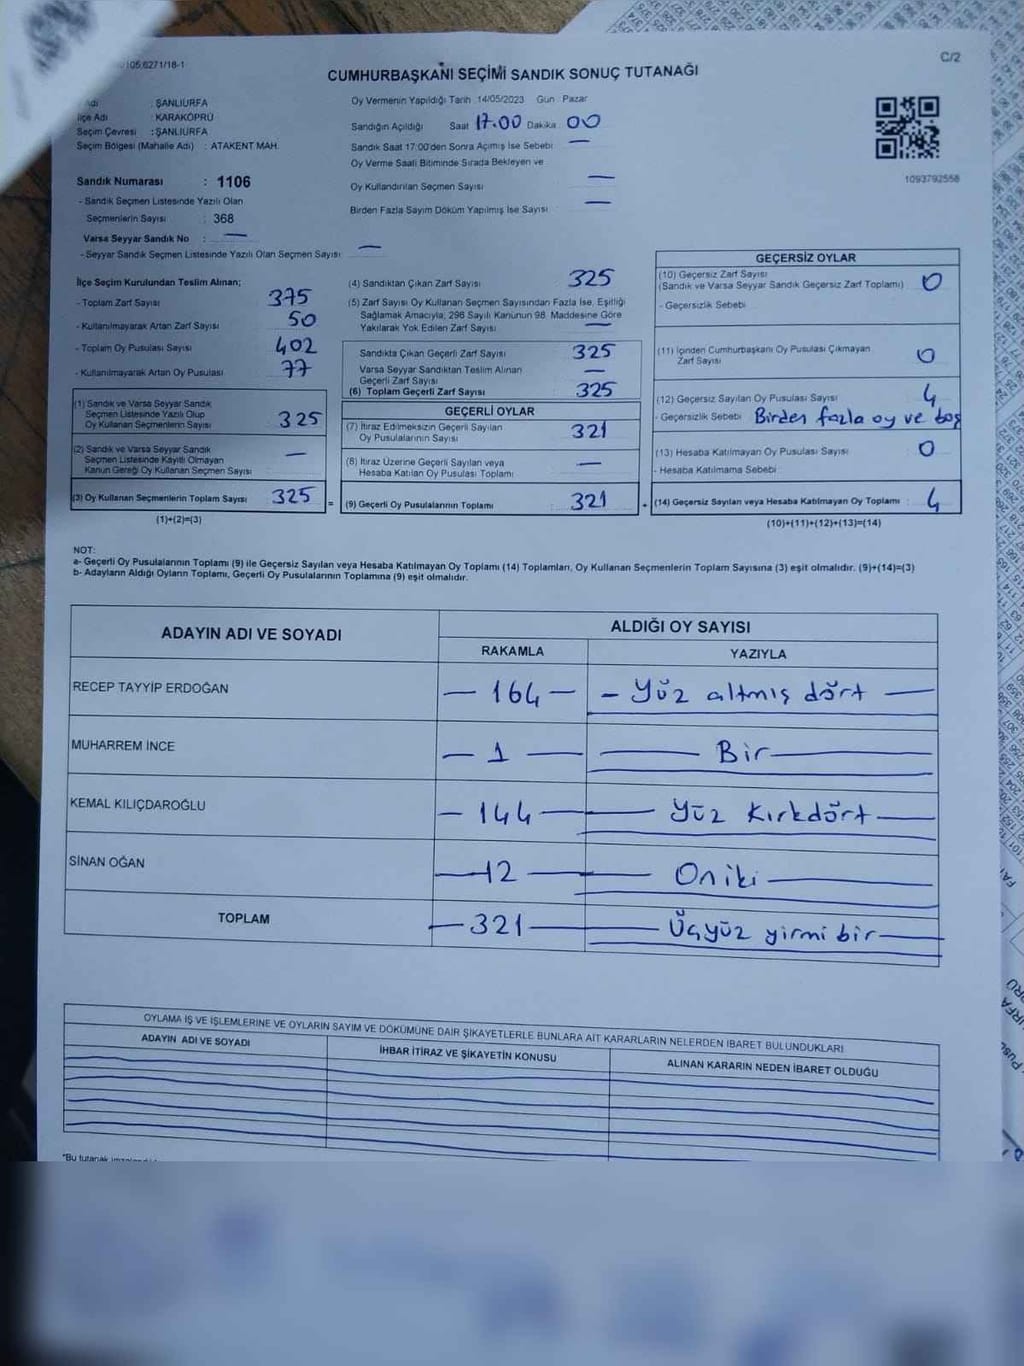 105.6271/18-1
C/2
CUMHURBAŞKANI SEÇİMİ SANDIK SONUÇ TUTANAĞI
: ŞANLIURFA
İlçe Adı : KARAKÖPRÜ
Seçim Çevresi : ŞANLIURFA
Seçim Bölgesi (Mahalle Adı) : ATAKENT MAH.
Sandık Numarası : 1106
- Sandık Seçmen Listesinde Yazılı Olan
Seçmenlerin Sayısı : 368
Varsa Seyyar Sandık No : —
- Seyyar Sandık Seçmen Listesinde Yazılı Olan Seçmen Sayısı : —
Oy Vermenin Yapıldığı Tarih : 14/05/2023 Gün : Pazar
Sandığın Açıldığı Saat 17.00 Dakika 00
Sandık Saat 17:00'den Sonra Açımış İse Sebebi : —
Oy Verme Saati Bitiminde Sırada Bekleyen ve
Oy Kullandırılan Seçmen Sayısı : —
Birden Fazla Sayım Döküm Yapılmış İse Sayısı : —
1093792558
İlçe Seçim Kurulundan Teslim Alınan;
- Toplam Zarf Sayısı : 375
- Kullanılmayarak Artan Zarf Sayısı : 50
- Toplam Oy Pusulası Sayısı : 402
- Kullanılmayarak Artan Oy Pusulası : 77
(1) Sandık ve Varsa Seyyar Sandık
Seçmen Listesinde Yazılı Olup
Oy Kullanan Seçmenlerin Sayısı : 325
(2) Sandık ve Varsa Seyyar Sandık
Seçmen Listesinde Kayıtlı Olmayan
Kanun Gereği Oy Kullanan Seçmen Sayısı : —
(3) Oy Kullanan Seçmenlerin Toplam Sayısı : 325
(1)+(2)=(3)
(4) Sandıktan Çıkan Zarf Sayısı : 325
(5) Zarf Sayısı Oy Kullanan Seçmen Sayısından Fazla İse, Eşitliği
Sağlamak Amacıyla, 298 Sayılı Kanunun 98. Maddesine Göre
Yakılarak Yok Edilen Zarf Sayısı : —
Sandıkta Çıkan Geçerli Zarf Sayısı : 325
Varsa Seyyar Sandıktan Teslim Alınan
Geçerli Zarf Sayısı : —
(6) Toplam Geçerli Zarf Sayısı : 325
GEÇERLİ OYLAR
(7) İtiraz Edilmeksizin Geçerli Sayılan
Oy Pusulalarının Sayısı : 321
(8) İtiraz Üzerine Geçerli Sayılan veya
Hesaba Katılan Oy Pusulası Toplamı : —
= (9) Geçerli Oy Pusulalarının Toplamı : 321 +
GEÇERSİZ OYLAR
(10) Geçersiz Zarf Sayısı
(Sandık ve Varsa Seyyar Sandık Geçersiz Zarf Toplamı) : 0
- Geçersizlik Sebebi :
(11) İçinden Cumhurbaşkanı Oy Pusulası Çıkmayan
Zarf Sayısı : 0
(12) Geçersiz Sayılan Oy Pusulası Sayısı : 4
- Geçersizlik Sebebi : Birden fazla oy ve boş
(13) Hesaba Katılmayan Oy Pusulası Sayısı : 0
- Hesaba Katılmama Sebebi :
(14) Geçersiz Sayılan veya Hesaba Katılmayan Oy Toplamı : 4
(10)+(11)+(12)+(13)=(14)
NOT:
a- Geçerli Oy Pusulalarının Toplamı (9) ile Geçersiz Sayılan veya Hesaba Katılmayan Oy Toplamı (14) Toplamları, Oy Kullanan Seçmenlerin Toplam Sayısına (3) eşit olmalıdır. (9)+(14)=(3)
b- Adayların Aldığı Oyların Toplamı, Geçerli Oy Pusulalarının Toplamına (9) eşit olmalıdır.
ADAYIN ADI VE SOYADI
ALDIĞI OY SAYISI
RAKAMLA YAZIYLA
RECEP TAYYİP ERDOĞAN — 164 — — Yüz altmış dört —
MUHARREM İNCE — 1 — — Bir —
KEMAL KILIÇDAROĞLU — 144 — — Yüz Kırkdört —
SİNAN OĞAN — 12 — — Oniki —
TOPLAM — 321 — — Üçyüz yirmi bir —
OYLAMA İŞ VE İŞLEMLERİNE VE OYLARIN SAYIM VE DÖKÜMÜNE DAİR ŞİKAYETLERLE BUNLARA AİT KARARLARIN NELERDEN İBARET BULUNDUKLARI
ADAYIN ADI VE SOYADI İHBAR İTİRAZ VE ŞİKAYETİN KONUSU ALINAN KARARIN NEDEN İBARET OLDUĞU
*Bu tutanak